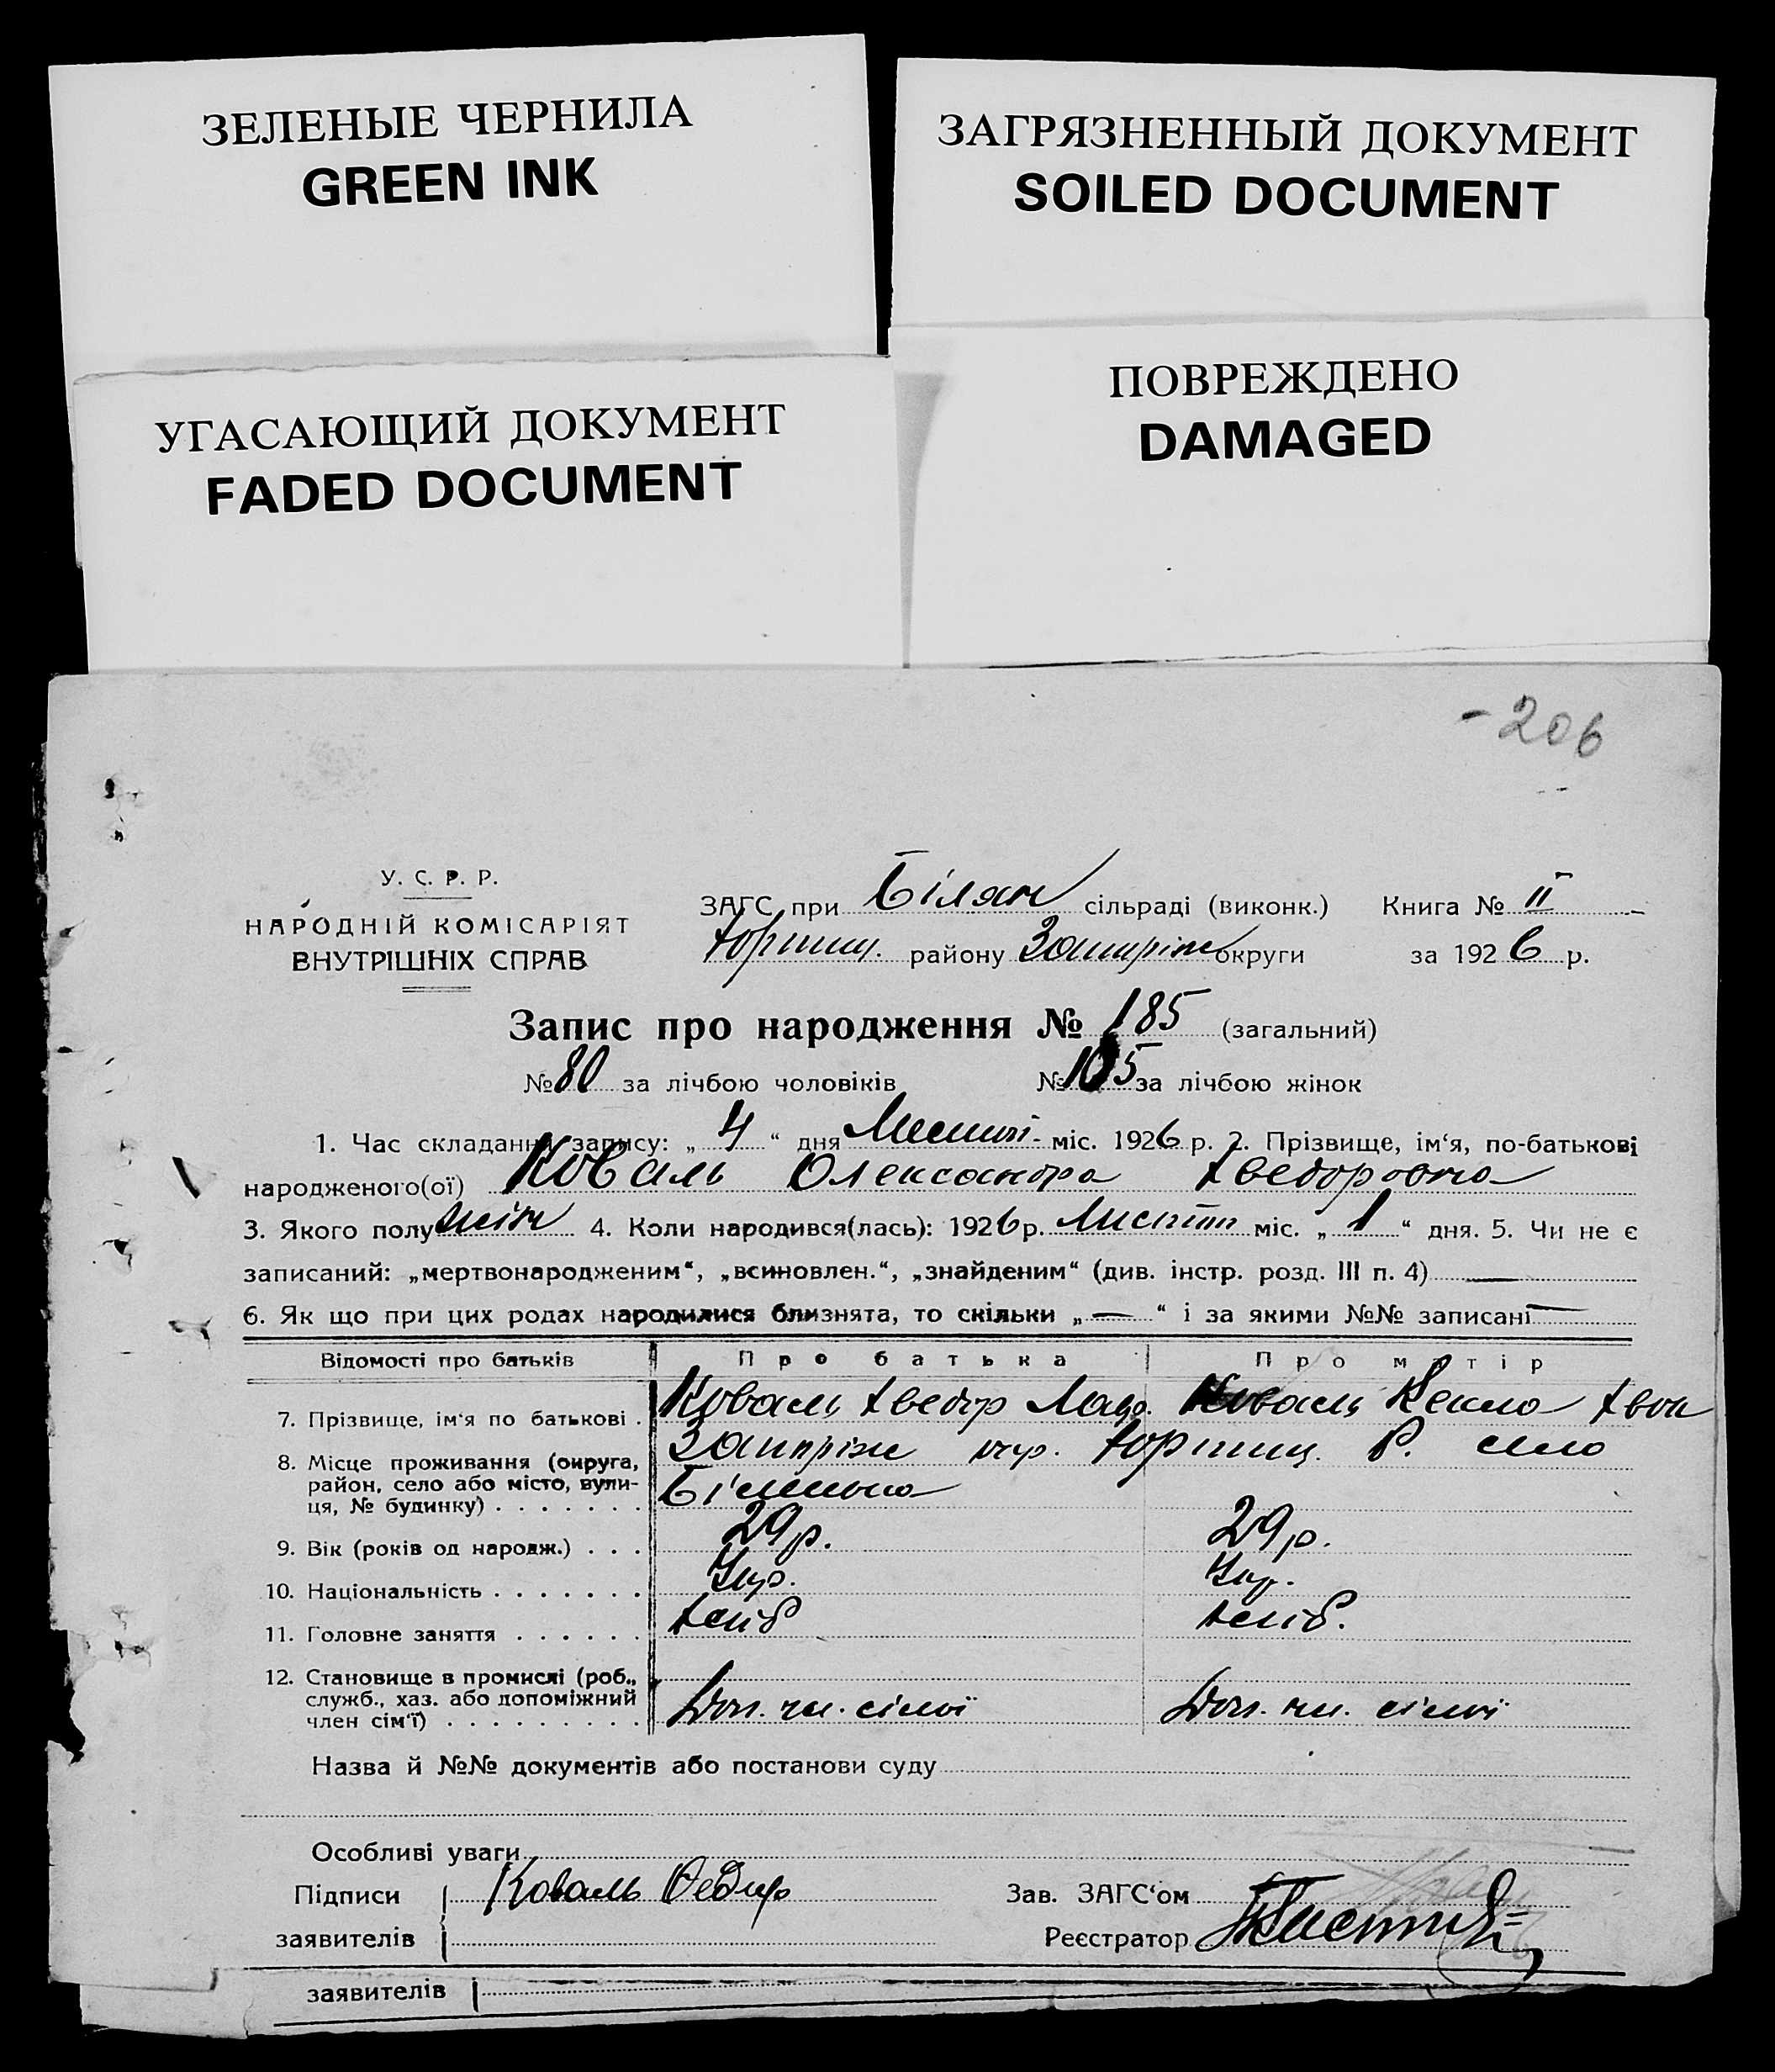 ЗЕЛЕНЫЕ ЧЕРНИЛА
GREEN INK
ЗАГРЯЗНЕННЫЙ ДОКУМЕНТ
SOILED DOCUMENT
УГАСАЮЩИЙ ДОКУМЕНТ
FADED DOCUMENT
ПОВРЕЖДЕНО
DAMAGED
-206
У. С. Р. Р.
НАРОДНІЙ КОМІСАРІЯТ
ВНУТРІШНІХ СПРАВ
ЗАГС при Білян сільраді (виконк.) Книга № II
району Запоріж округи за 1926 р.
Запис про народження № 185 (загальний)
№ 80 за лічбою чоловіків № 105 за лічбою жінок
1. Час складання запису: „ 4 “ дня міс. 1926 р. 2. Прізвище, ім‘я, по-батькові
народженого(ої) Коваль Олександра Хведоровна
3. Якого полу жін 4. Коли народився(лась): 1926 р. Листоп міс. „ 1 “ дня. 5. Чи не є
записаний: „мертвонародженим“, „всиновлен.“, „знайденим“ (див. інстр. розд. III п. 4) —
6. Як що при цих родах народилися близнята, то скільки „ — “ і за якими №№ записані —
Відомості про батьків Про батька Про матір
7. Прізвище, ім‘я по батькові . Коваль Хведір Коваль Текла
8. Місце проживання (округа, Запоріж окр. р. село
район, село або місто, вули-
ця, № будинку) . . . . . . .
9. Вік (років од народж.) . . . 29 р. 29 р.
10. Національність . . . . . . . Укр. Укр.
11. Головне заняття . . . . . . Хліб Хліб.
12. Становище в промислі (роб.,
служб., хаз. або допоміжний
член сім‘ї) . . . . . . . . . Доп. чл. сімї Доп. чл. сімї
Назва й №№ документів або постанови суду
Особливі уваги
Підписи Коваль Федир Зав. ЗАГС‘ом
заявителів Реєстратор
заявителів